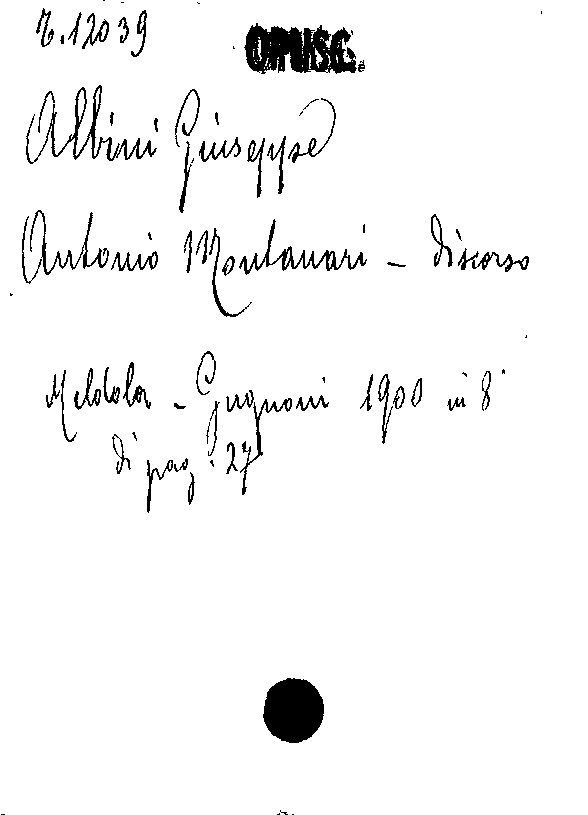 Z.12039
OPUSC.
Albini Giuseppe
Antonio Montanari - discorso
Meldola - Gugnoni 1900 in 8°
di pag. 27